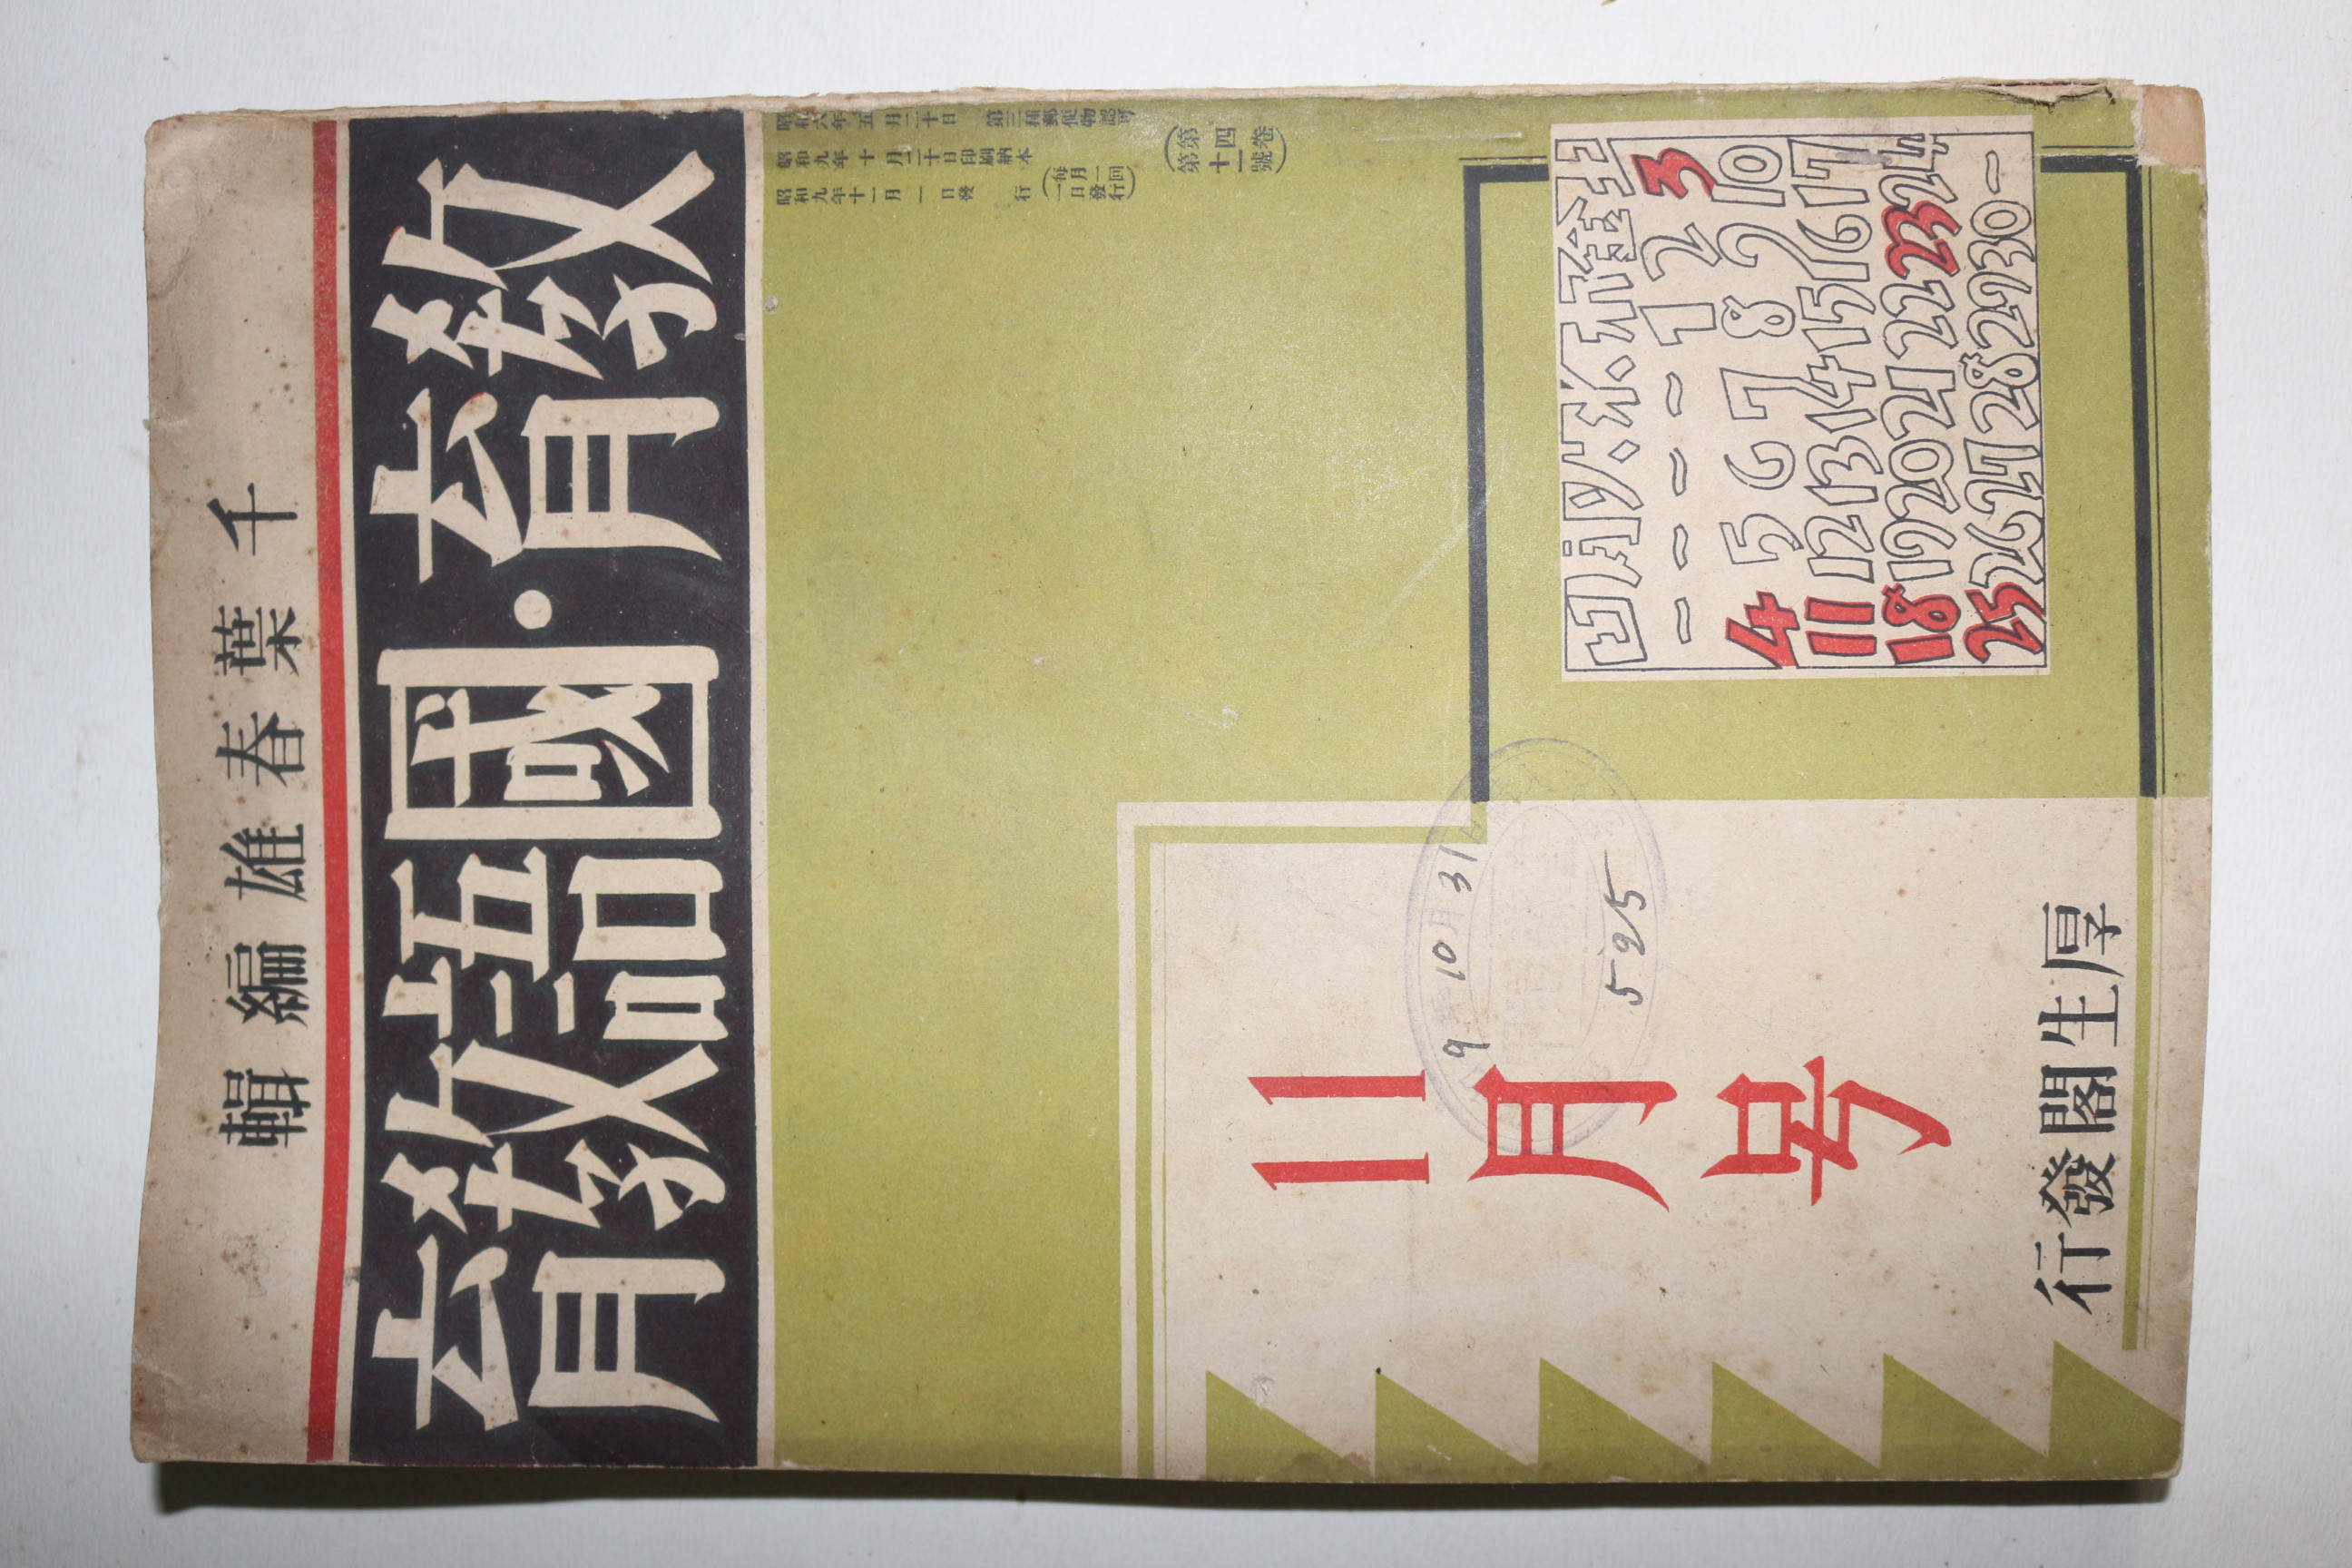 千葉春雄編輯
教育・國語教育
昭和六年五月二十日 第三種郵便物認可
昭和九年十月二十日印刷納本
昭和九年十一月一日發行 (毎月一回一日發行)
(第四卷 第十一號)
日月火水木金土
1 2 3
4 5 6 7 8 9 10
11 12 13 14 15 16 17
18 19 20 21 22 23 24
25 26 27 28 29 30
11月号
9年10月31日
595
厚生閣發行